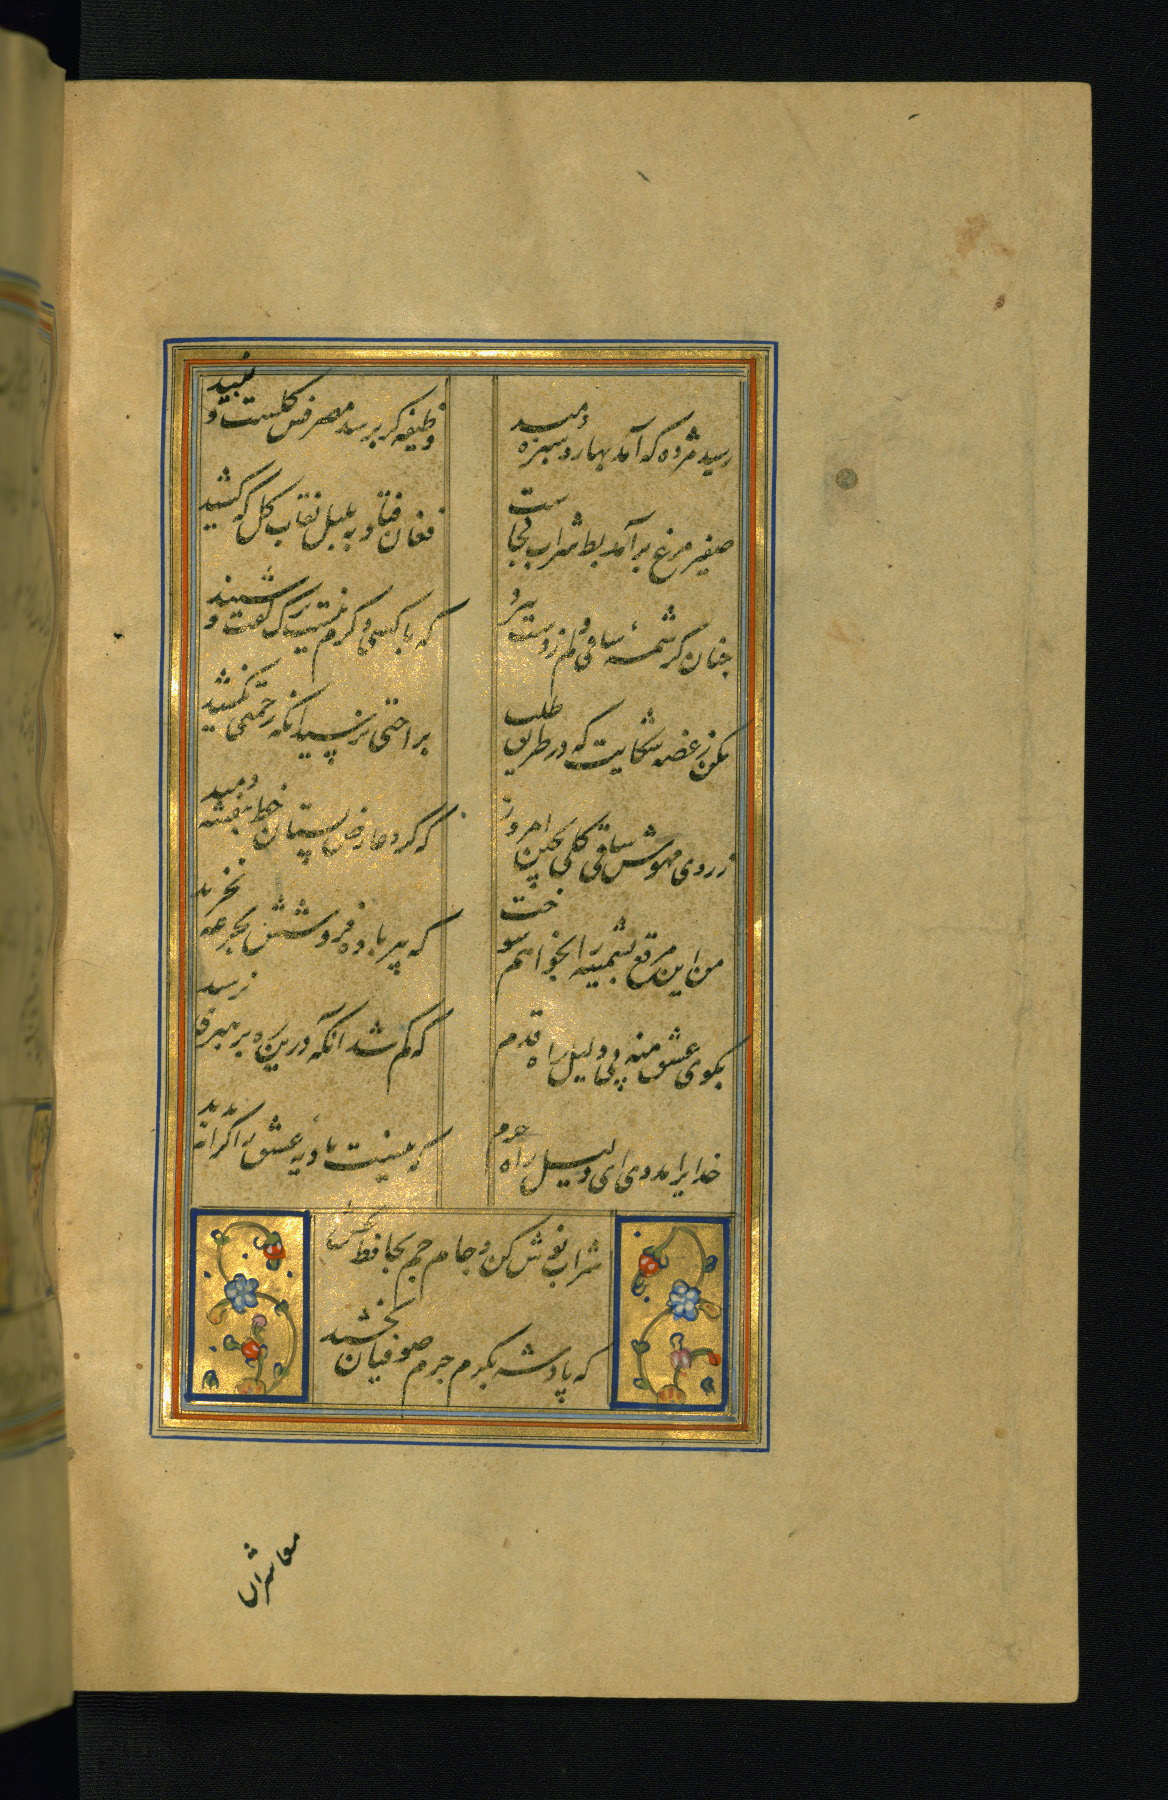 رسید مژده که آمد بهار و سبزه دمید
وظیفه کر برسد مصرفش کلست و نبید
صفیر مرغ برآمد بط شراب کجاست
فغان فتاد به بلبل نقاب کل که کشید
چنان کرشمهٔ ساقی دلم ز دست ببرد
که با کسی دکرم نیست برک کفت و شنید
مکن ز غصه شکایت که در طریق طلب
براحتی نرسید انکه زحمتی نکشید
ز روی مهوش ساقی کلی بچین امروز
که کرد عارض بستان خط بنفشه دمید
من این مرقع پشمینه را بخواهم سوخت
که پیر باده فروشش بجرعه نخرید
بکوی عشق منه بی دلیل راه قدم
که کم شد انکه درین ره برهبری نرسد
خدایرا مددی ای دلیل راه حرم
که نیست بادیه عشق را کرانه پدید
شراب نوش کن و جام جم بحافظ بخش
که پادشه بکرم جرم صوفیان بخشد
معاشران